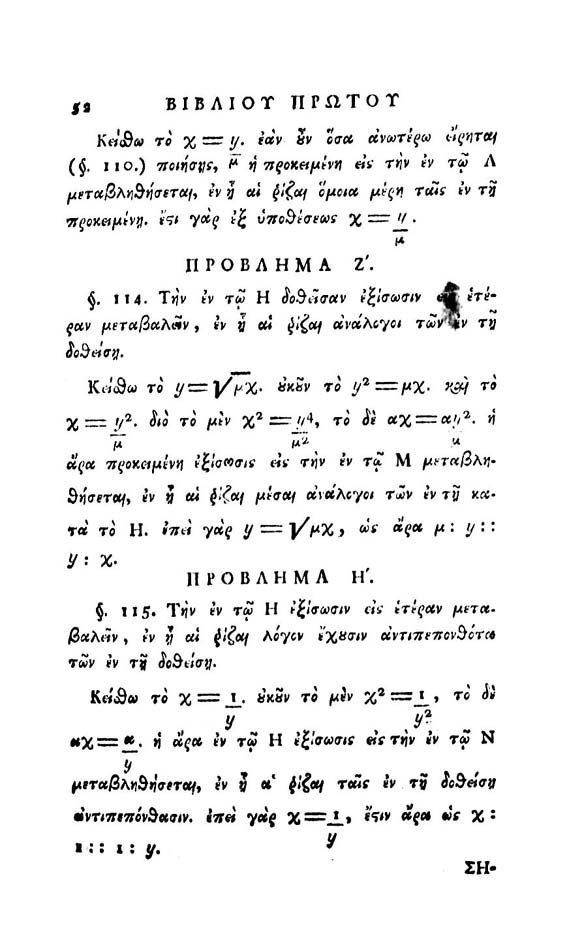 52 ΒΙΒΛΙΟΥ ΠΡΩΤΟΥ
Κείσθω τὸ χ = y. ἐὰν οὖν ὅσα ἀνωτέρω εἴρηται
μ
(§. 110.) ποιήσῃς, ἡ προκειμένη εἰς τὴν ἐν τῷ Λ
μεταβληθήσεται, ἐν ᾗ αἱ ῥίζαι ὅμοια μέρη ταῖς ἐν τῇ
προκειμένῃ. ἔστι γὰρ ἐξ ὑποθέσεως χ = y.
μ
ΠΡΟΒΛΗΜΑ Ζ΄.
§. 114. Τὴν ἐν τῷ Η δοθεῖσαν ἐξίσωσιν εἰς ἑτέ-
ραν μεταβαλεῖν, ἐν ᾗ αἱ ῥίζαι ἀνάλογοι τῶν ἐν τῇ
δοθείσῃ.
Κείσθω τὸ y = √μχ. οὐκοῦν τὸ y² = μχ. καὶ τὸ
χ = y². διὸ τὸ μὲν χ² = y⁴, τὸ δὲ αχ = αy². ἡ
μ μ² μ
ἄρα προκειμένη ἐξίσωσις εἰς τὴν ἐν τῷ Μ μεταβλη-
θήσεται, ἐν ᾗ αἱ ῥίζαι μέσαι ἀνάλογοι τῶν ἐν τῇ κα-
τὰ τὸ Η. ἐπεὶ γὰρ y = √μχ, ὡς ἄρα μ : y ::
y : χ.
ΠΡΟΒΛΗΜΑ Η΄.
§. 115. Τὴν ἐν τῷ Η ἐξίσωσιν εἰς ἑτέραν μετα-
βαλεῖν, ἐν ᾗ αἱ ῥίζαι λόγον ἔχουσιν ἀντιπεπονθότα
τῶν ἐν τῇ δοθείσῃ.
Κείσθω τὸ χ = 1. οὐκοῦν τὸ μὲν χ² = 1, τὸ δὲ
y y²
αχ = α. ἡ ἄρα ἐν τῷ Η ἐξίσωσις εἰς τὴν ἐν τῷ Ν
y
μεταβληθήσεται, ἐν ᾗ αἱ ῥίζαι ταῖς ἐν τῇ δοθείσῃ
ἀντιπεπόνθασιν. ἐπεὶ γὰρ χ = 1, ἔστιν ἄρα ὡς χ :
y
1 :: 1 : y.
ΣΗ-